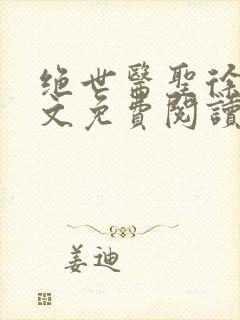 绝世醫聖徐
文免費閱讀
姜迪